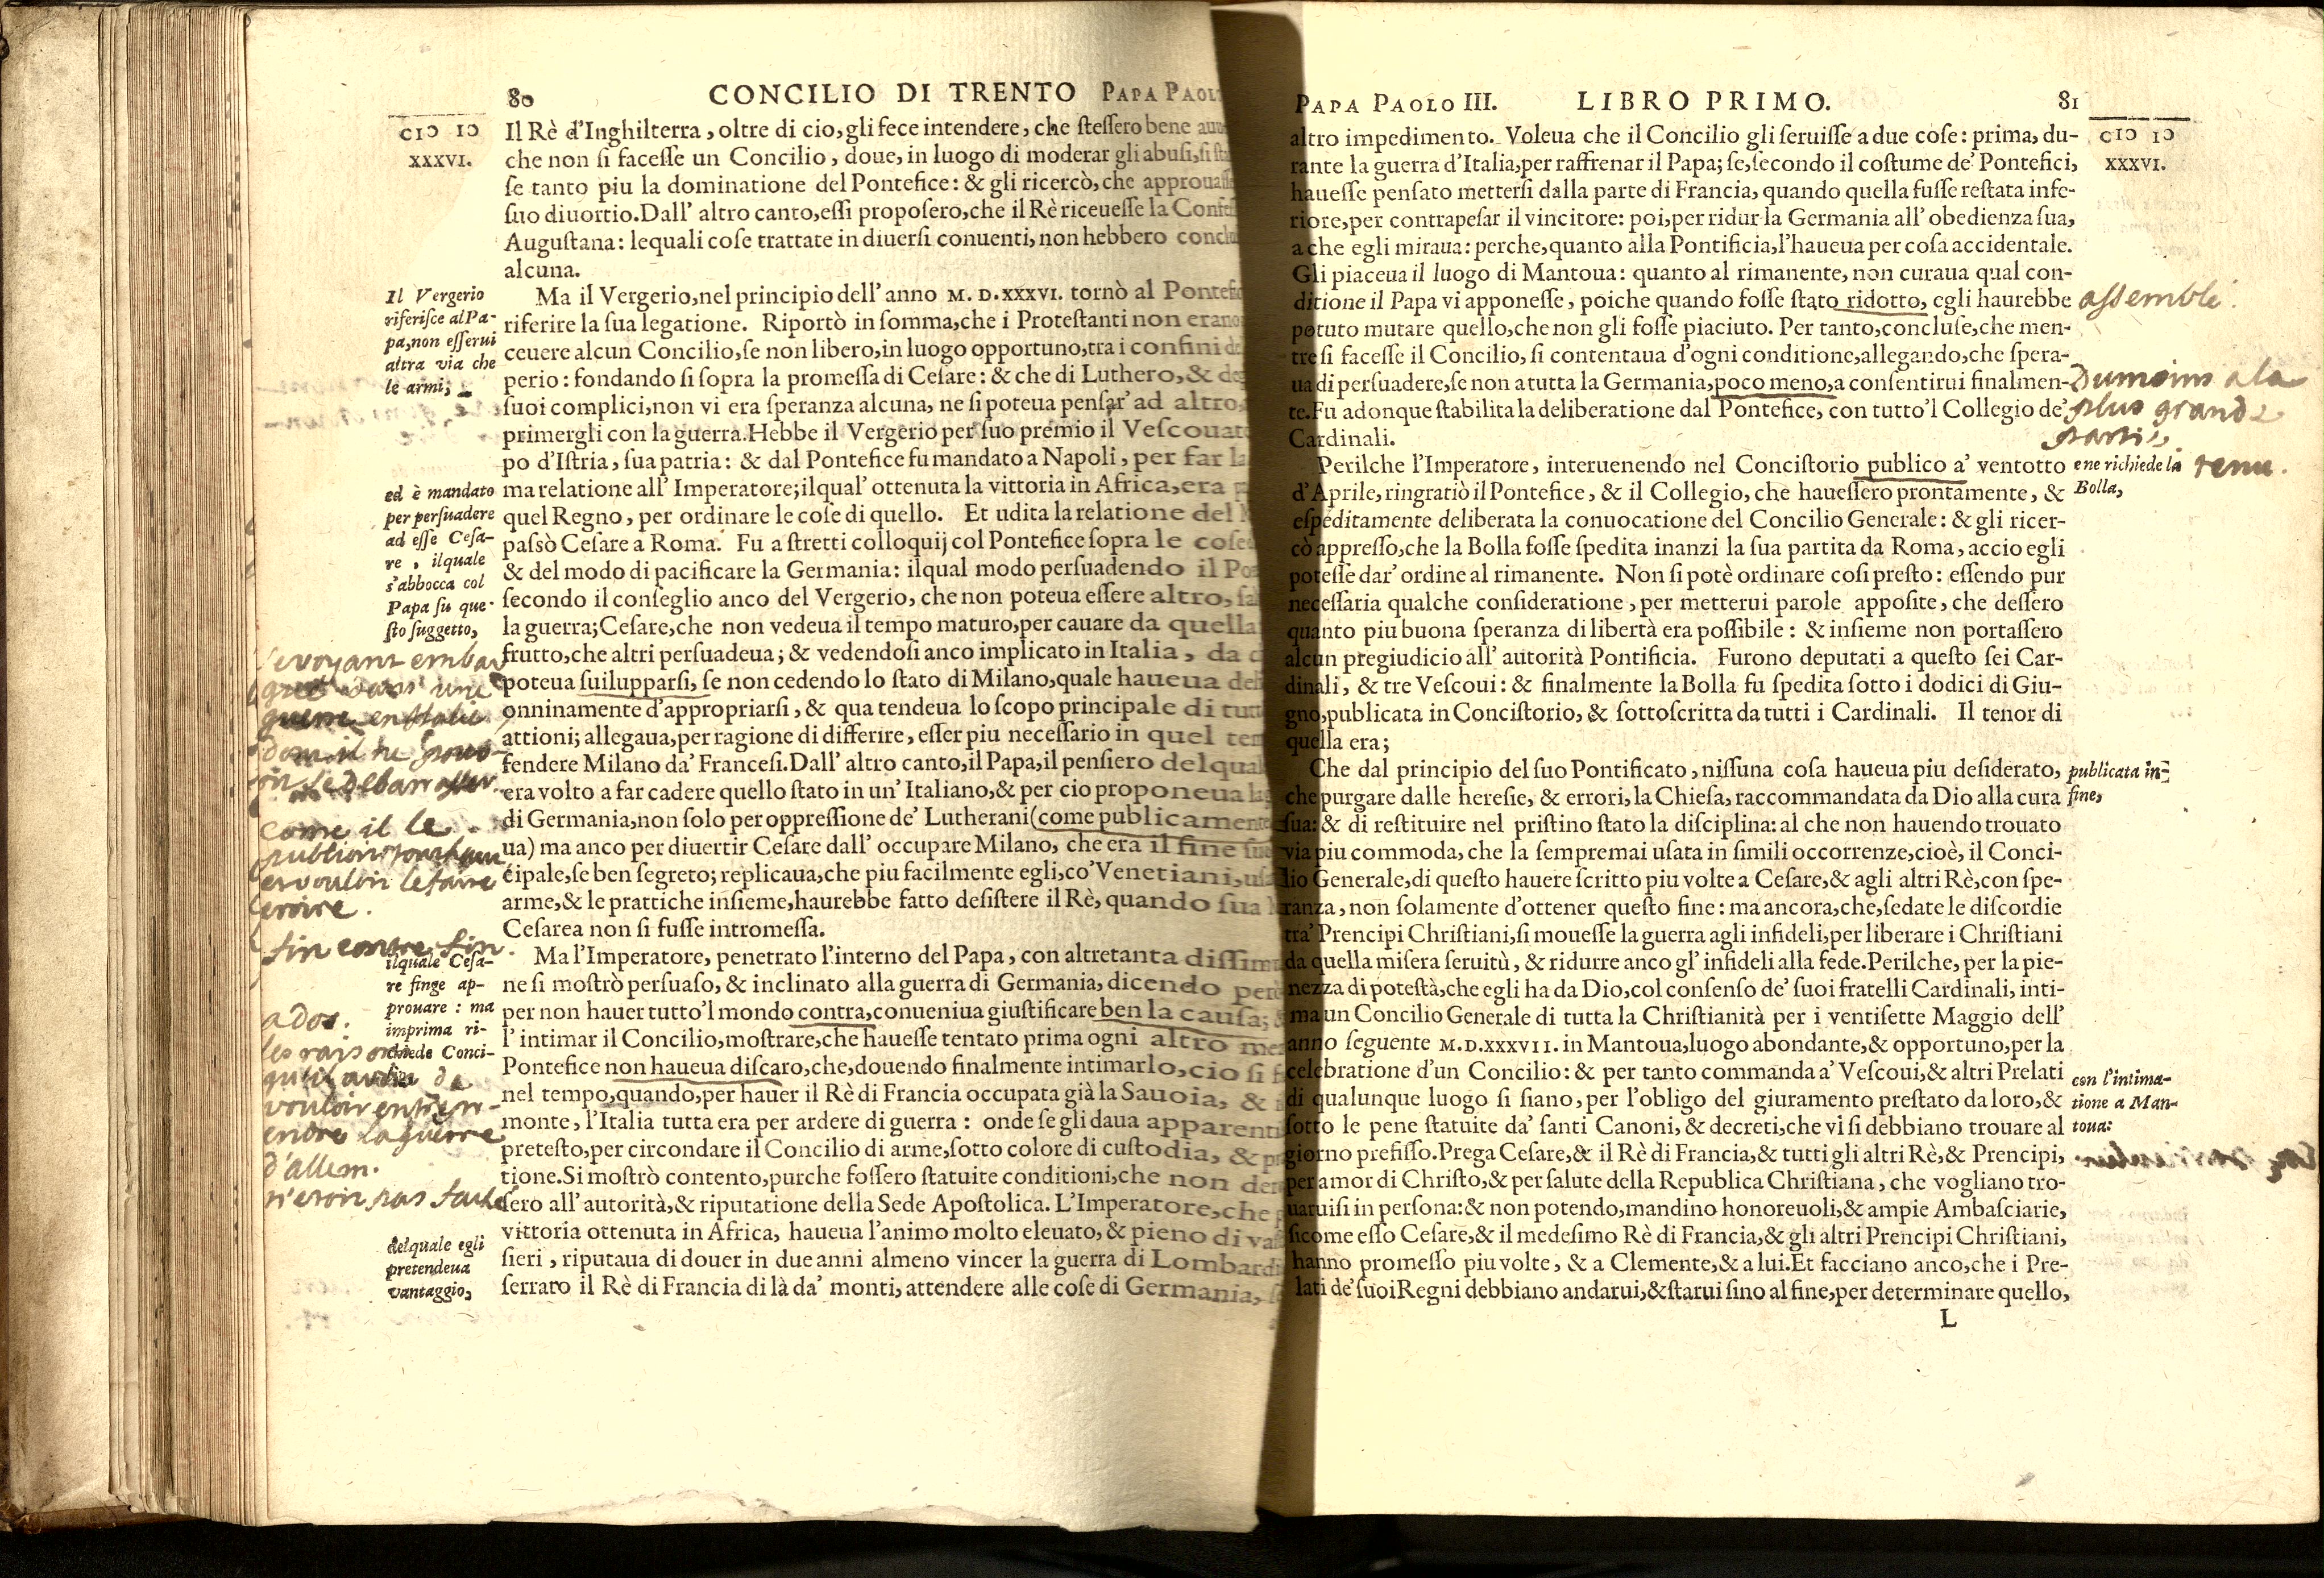 80 CONCILIO DI TRENTO PAPA PAOL
CIↃ IↃ
XXXVI.
Il Rè d'Inghilterra, oltre di cio, gli fece intendere, che ſteſſero bene
che non ſi faceſſe un Concilio, doue, in luogo di moderar gli abuſi, ſi
ſe tanto piu la dominatione del Pontefice: & gli ricercò, che
ſuo diuortio. Dall' altro canto, eſſi propoſero, che il Rè riceueſſe la
Auguſtana: lequali coſe trattate in diuerſi conuenti, non hebbero
alcuna.
Il Vergerio
riferiſce al Pa-
pa, non eſſerui
altra via che
le armi;
Ma il Vergerio, nel principio dell' anno M. D. XXXVI. tornò al
riferire la ſua legatione. Riportò in ſomma, che i Proteſtanti non erano
ceuere alcun Concilio, ſe non libero, in luogo opportuno, tra i confini
perio: fondando ſi ſopra la promeſſa di Ceſare: & che di Luthero, &
ſuoi complici, non vi era ſperanza alcuna, ne ſi poteua penſar' ad altro,
primergli con la guerra. Hebbe il Vergerio per ſuo premio il
po d'Iſtria, ſua patria: & dal Pontefice fu mandato a Napoli, per far
ed è mandato
per perſuadere
ad eſſe Ceſa-
re, ilquale
s'abbocca col
Papa ſu que-
ſto ſuggetto,
ma relatione all' Imperatore; ilqual' ottenuta la vittoria in Africa, era
quel Regno, per ordinare le coſe di quello. Et udita la relatione del
paſsò Ceſare a Roma. Fu a ſtretti colloquij col Pontefice ſopra le coſe
& del modo di pacificare la Germania: ilqual modo perſuadendo il
ſecondo il conſeglio anco del Vergerio, che non poteua eſſere altro,
la guerra; Ceſare, che non vedeua il tempo maturo, per cauare da quella
frutto, che altri perſuadeua; & vedendoſi anco implicato in Italia, da
poteua ſuilupparſi, ſe non cedendo lo ſtato di Milano, quale haueua
onninamente d'appropriarſi, & qua tendeua lo ſcopo principale di
attioni; allegaua, per ragione di differire, eſſer piu neceſſario in quel
fendere Milano da' Franceſi. Dall' altro canto, il Papa, il penſiero del
era volto a far cadere quello ſtato in un' Italiano, & per cio proponeua
di Germania, non ſolo per oppreſſione de' Lutherani (come
ua) ma anco per diuertir Ceſare dall' occupare Milano, che era il fine
cipale, ſe ben ſegreto; replicaua, che piu facilmente egli, co' Venetiani,
arme, & le prattiche inſieme, haurebbe fatto deſiſtere il Rè, quando ſua
Ceſarea non ſi fuſſe intromeſſa.
come il le
croire.
fin contre fin.
ilquale Ceſa-
re finge ap-
prouare: ma
imprima ri-
chiede Conci-
Ma l'Imperatore, penetrato l'interno del Papa, con altretanta
ne ſi moſtrò perſuaſo, & inclinato alla guerra di Germania, dicendo
per non hauer tutto'l mondo contra, conueniua giuſtificare ben la cauſa;
l' intimar il Concilio, moſtrare, che haueſſe tentato prima ogni altro
Pontefice non haueua diſcaro, che, douendo finalmente intimarlo, cio ſi
nel tempo, quando, per hauer il Rè di Francia occupata già la Sauoia, &
monte, l'Italia tutta era per ardere di guerra: onde ſe gli daua
preteſto, per circondare il Concilio di arme, ſotto colore di cuſtodia, &
tione. Si moſtrò contento, purche foſſero ſtatuite conditioni, che non
ſero all' autorità, & riputatione della Sede Apoſtolica. L'Imperatore, che
vittoria ottenuta in Africa, haueua l'animo molto eleuato, & pieno di
ſieri, riputaua di douer in due anni almeno vincer la guerra di
ſerrato il Rè di Francia di là da' monti, attendere alle coſe di Germania,
la guerre
d'allem.
delquale egli
pretendeua
vantaggio,
PAPA PAOLO III. LIBRO PRIMO. 81
CIↃ IↃ
XXXVI.
altro impedimento. Voleua che il Concilio gli ſeruiſſe a due coſe: prima, du-
rante la guerra d'Italia, per raffrenar il Papa; ſe, ſecondo il coſtume de' Pontefici,
haueſſe penſato metterſi dalla parte di Francia, quando quella fuſſe reſtata infe-
riore, per contrapeſar il vincitore: poi, per ridur la Germania all' obedienza ſua,
a che egli miraua: perche, quanto alla Pontificia, l'haueua per coſa accidentale.
Gli piaceua il luogo di Mantoua: quanto al rimanente, non curaua qual con-
ditione il Papa vi apponeſſe, poiche quando foſſe ſtato ridotto, egli haurebbe
assemblé.
potuto mutare quello, che non gli foſſe piaciuto. Per tanto, concluſe, che men-
tre ſi faceſſe il Concilio, ſi contentaua d'ogni conditione, allegando, che ſpera-
ua di perſuadere, ſe non a tutta la Germania, poco meno, a conſentirui finalmen-
te. Fu adonque ſtabilita la deliberatione dal Pontefice, con tutto'l Collegio de'
Cardinali.
Du moins a la
plus grande
partie,
Perilche l'Imperatore, interuenendo nel Conciſtorio publico a' ventotto
e ne richiede la
Bolla,
tenu.
d'Aprile, ringratiò il Pontefice, & il Collegio, che haueſſero prontamente, &
eſpeditamente deliberata la conuocatione del Concilio Generale: & gli ricer-
cò appreſſo, che la Bolla foſſe ſpedita inanzi la ſua partita da Roma, accio egli
poteſſe dar' ordine al rimanente. Non ſi potè ordinare coſi preſto: eſſendo pur
neceſſaria qualche conſideratione, per metterui parole appoſite, che deſſero
quanto piu buona ſperanza di libertà era poſſibile: & inſieme non portaſſero
alcun pregiudicio all' autorità Pontificia. Furono deputati a queſto ſei Car-
dinali, & tre Veſcoui: & finalmente la Bolla fu ſpedita ſotto i dodici di Giu-
gno, publicata in Conciſtorio, & ſottoſcritta da tutti i Cardinali. Il tenor di
quella era;
Che dal principio del ſuo Pontificato, niſſuna coſa haueua piu deſiderato,
publicata in-
fine,
che purgare dalle hereſie, & errori, la Chieſa, raccommandata da Dio alla cura
ſua: & di reſtituire nel priſtino ſtato la diſciplina: al che non hauendo trouato
via piu commoda, che la ſempremai uſata in ſimili occorrenze, cioè, il Conci-
lio Generale, di queſto hauere ſcritto piu volte a Ceſare, & agli altri Rè, con ſpe-
ranza, non ſolamente d'ottener queſto fine: ma ancora, che, ſedate le diſcordie
tra' Prencipi Chriſtiani, ſi moueſſe la guerra agli infideli, per liberare i Chriſtiani
da quella miſera ſeruitù, & ridurre anco gl' infideli alla fede. Perilche, per la pie-
nezza di poteſtà, che egli ha da Dio, col conſenſo de' ſuoi fratelli Cardinali, inti-
ma un Concilio Generale di tutta la Chriſtianità per i ventiſette Maggio dell'
anno ſeguente M.D.XXXVII. in Mantoua, luogo abondante, & opportuno, per la
celebratione d'un Concilio: & per tanto commanda a' Veſcoui, & altri Prelati
con l'intima-
tione a Man-
toua:
di qualunque luogo ſi ſiano, per l'obligo del giuramento preſtato da loro, &
ſotto le pene ſtatuite da' ſanti Canoni, & decreti, che vi ſi debbiano trouare al
giorno prefiſſo. Prega Ceſare, & il Rè di Francia, & tutti gli altri Rè, & Prencipi,
per amor di Chriſto, & per ſalute della Republica Chriſtiana, che vogliano tro-
uaruiſi in perſona: & non potendo, mandino honoreuoli, & ampie Ambaſciarie,
ſicome eſſo Ceſare, & il medeſimo Rè di Francia, & gli altri Prencipi Chriſtiani,
hanno promeſſo piu volte, & a Clemente, & a lui. Et facciano anco, che i Pre-
lati de' ſuoi Regni debbiano andarui, & ſtarui ſino al fine, per determinare quello,
L